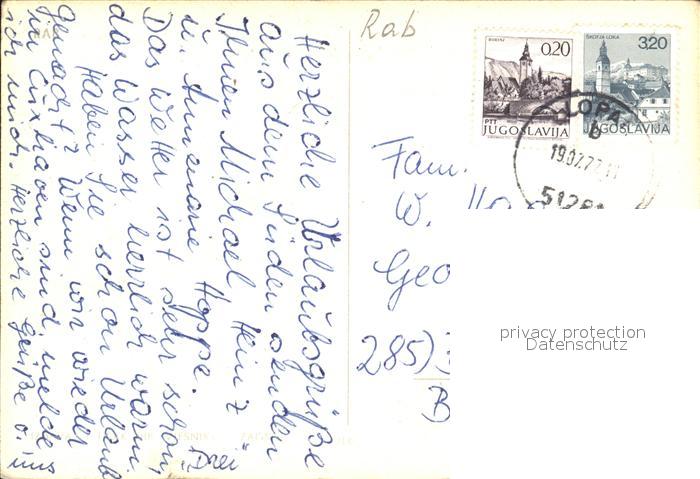 Rab
Herzliche Urlaubsgrüße
aus dem Süden senden
Ihnen Michael Heinz
u. Annemarie Hoppe.
Das Wetter ist sehr schön,
das Wasser herrlich warm.
Haben Sie schon Urlaub
gemacht? Wenn wir wieder
in Cuxhaven sind, melde
ich mich. Herzliche Grüße v. uns
"Drei"
BOHINJ
0,20
PTT
JUGOSLAVIJA
ŠKOFJA LOKA
3,20
JUGOSLAVIJA
LOPAR
b
19.07.77.11
5128
Fam.
W.
Geo
285)
B
privacy protection
Datenschutz